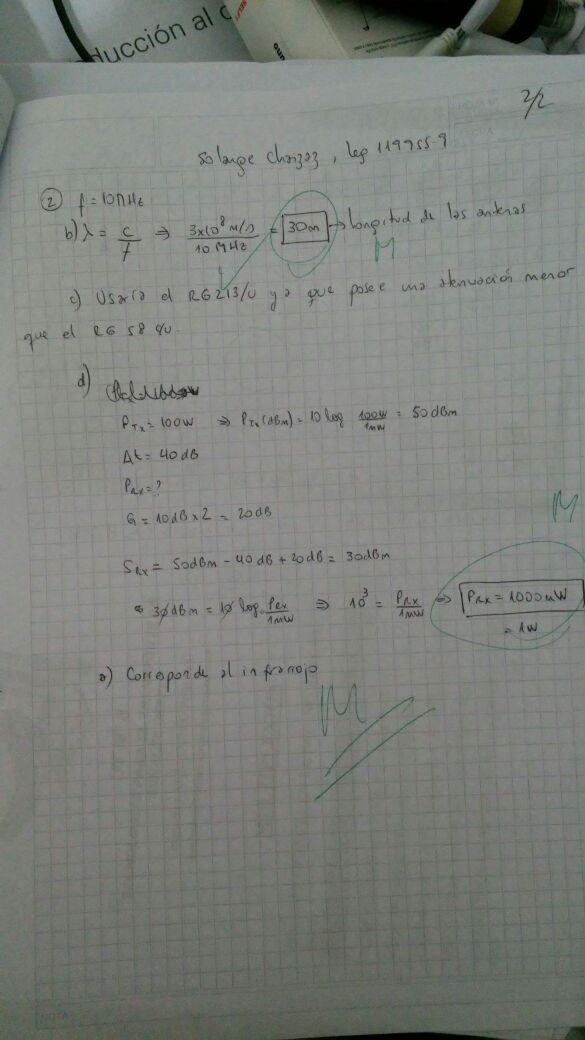 ducción al c
2/2
Solange Chazaz, leg 119955-9
② f = 10MHz
b) λ = c/f ⇒ 3x10⁸ m/s / 10 MHz = 30m → longitud de las antenas
M
c) Usaría el RG213/U ya que posee una atenuación menor
que el RG 58 c/u.
d)
PTx = 100W ⇒ PTx (dBm) = 10 log 100W/1mW = 50dBm
Δt = 40 dB
PRx = ?
G = 10dB x 2 = 20dB
M
SRx = 50dBm - 40dB + 20dB = 30dBm
30 dBm = 10 log PRx/1mW ⇒ 10³ = PRx/1mW ⇒ PRx = 1000mW
= 1W
a) Corresponde al infrarrojo
M
NOTA